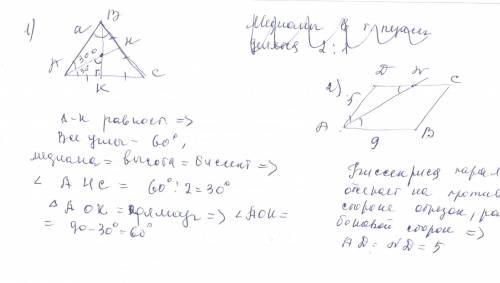 1)
B
a
30°
30
O
H
A
K
C
Δ-к равност. =>
Все углы - 60°,
медиана = высота = биссект =>
∠ AHC = 60° : 2 = 30°
Δ AOK = прямоуг => ∠AOK =
= 90 - 30° = 60°
Медианы в т. пересеч
делятся 2 : 1
2)
D
N
C
5
A
B
9
Биссектриса парал
отсекает на против
стороне отрезок, ра
боковой стороне =>
AD = ND = 5